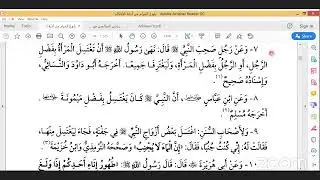 ٧- وَعَنْ رَجُلٍ صَحِبَ النَّبِيَّ ﷺ قَالَ: نَهَى رَسُولُ اللَّهِ ﷺ أَنْ تَغْتَسِلَ الْمَرْأَةُ بِفَضْلِ
الرَّجُلِ، أَوِ الرَّجُلُ بِفَضْلِ الْمَرْأَةِ، وَلْيَغْتَرِفَا جَمِيعًا. أَخْرَجَهُ أَبُو دَاوُدَ وَالنَّسَائِيُّ،
وَإِسْنَادُهُ صَحِيحٌ
٨- وَعَنِ ابْنِ عَبَّاسٍ، أَنَّ النَّبِيَّ ﷺ كَانَ يَغْتَسِلُ بِفَضْلِ مَيْمُونَةَ
أَخْرَجَهُ مُسْلِمٌ
٩- وَلِأَصْحَابِ السُّنَنِ: اغْتَسَلَ بَعْضُ أَزْوَاجِ النَّبِيِّ ﷺ فِي جَفْنَةٍ، فَجَاءَ لِيَغْتَسِلَ مِنْهَا،
فَقَالَتْ لَهُ: إِنِّي كُنْتُ جُنُبًا، فَقَالَ: «إِنَّ الْمَاءَ لَا يُجْنِبُ» وَصَحَّحَهُ التِّرْمِذِيُّ وَابْنُ خُزَيْمَةَ
١٠- وَعَنْ أَبِي هُرَيْرَةَ ﷺ قَالَ: قَالَ رَسُولُ اللَّهِ ﷺ: «طُهُورُ إِنَاءِ أَحَدِكُمْ إِذَا وَلَغَ